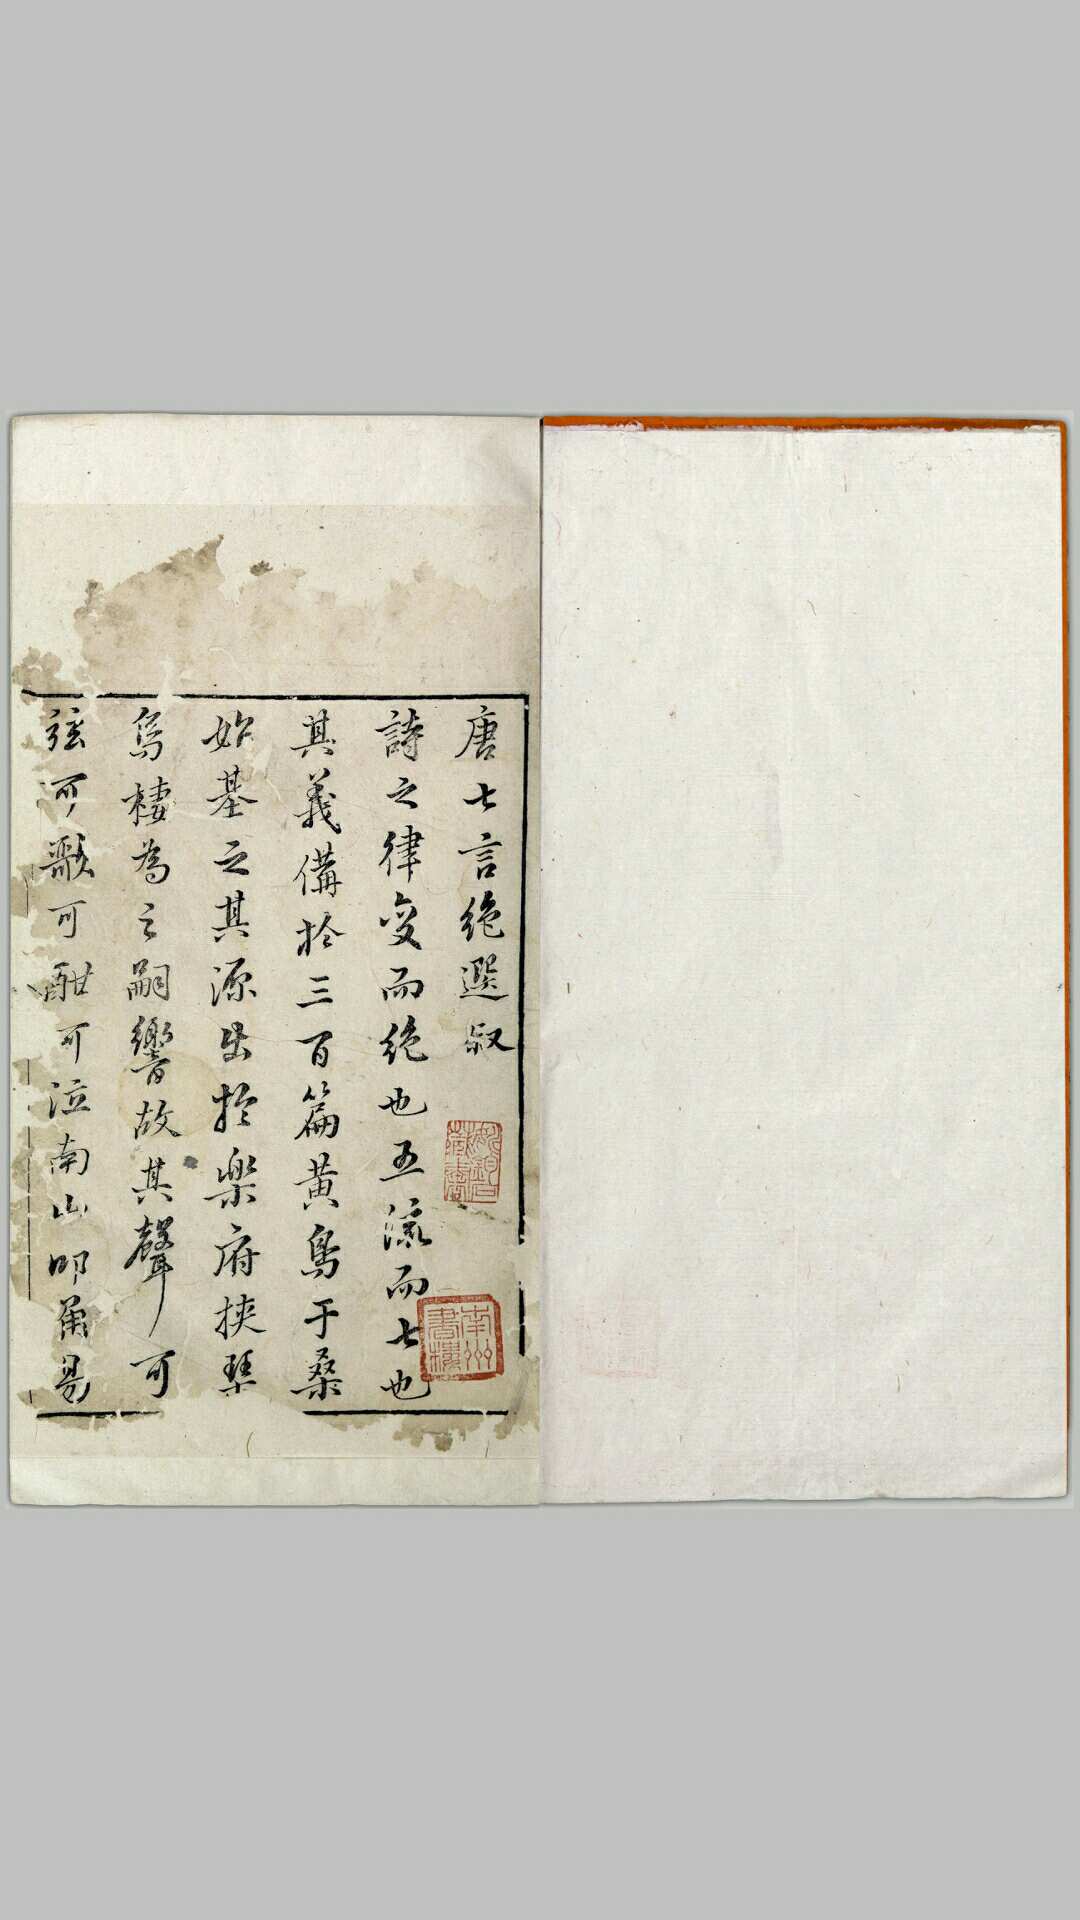 唐七言絶選叙
詩之律變而絶也五流而七也
其義備於三百篇黄鳥于桑
始基之其源出於樂府挾琴
烏棲為之嗣響故其聲可
弦可歌可酣可泣南山叩角易
南州書樓